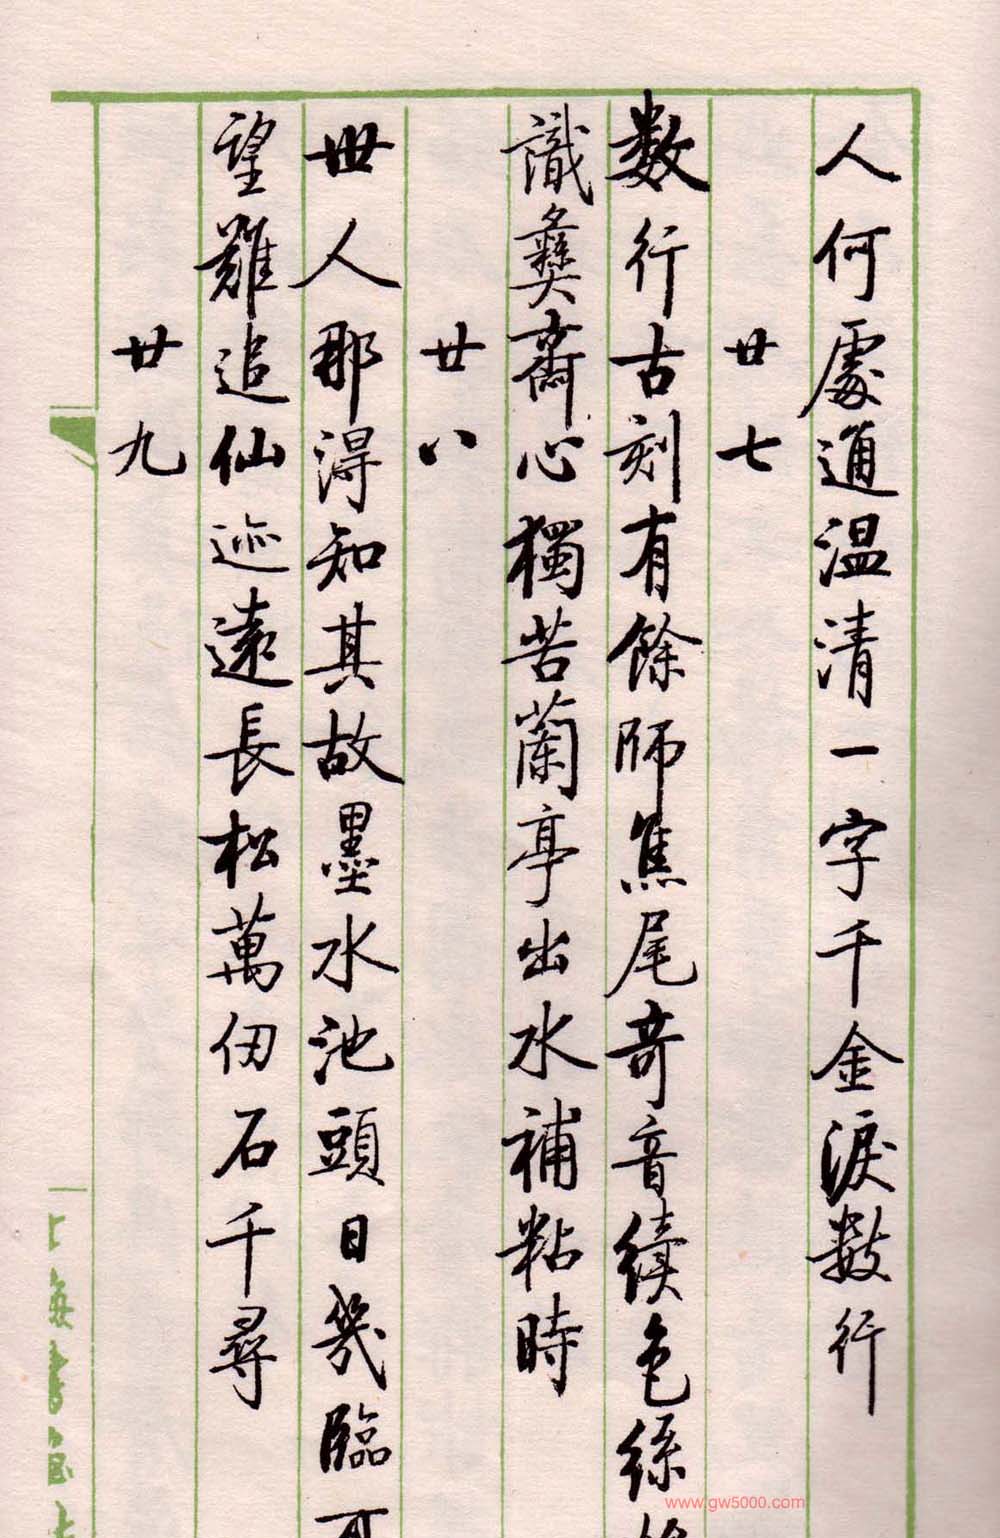 人何處通温清一字千金淚數行
廿七
数行古刻有餘師焦尾奇音續色絲
識彝齋心獨苦蘭亭出水補粘時
廿八
世人那得知其故墨水池頭日幾臨可
望難追仙迹遠長松萬仞石千尋
廿九
海書
www.gw5000.com